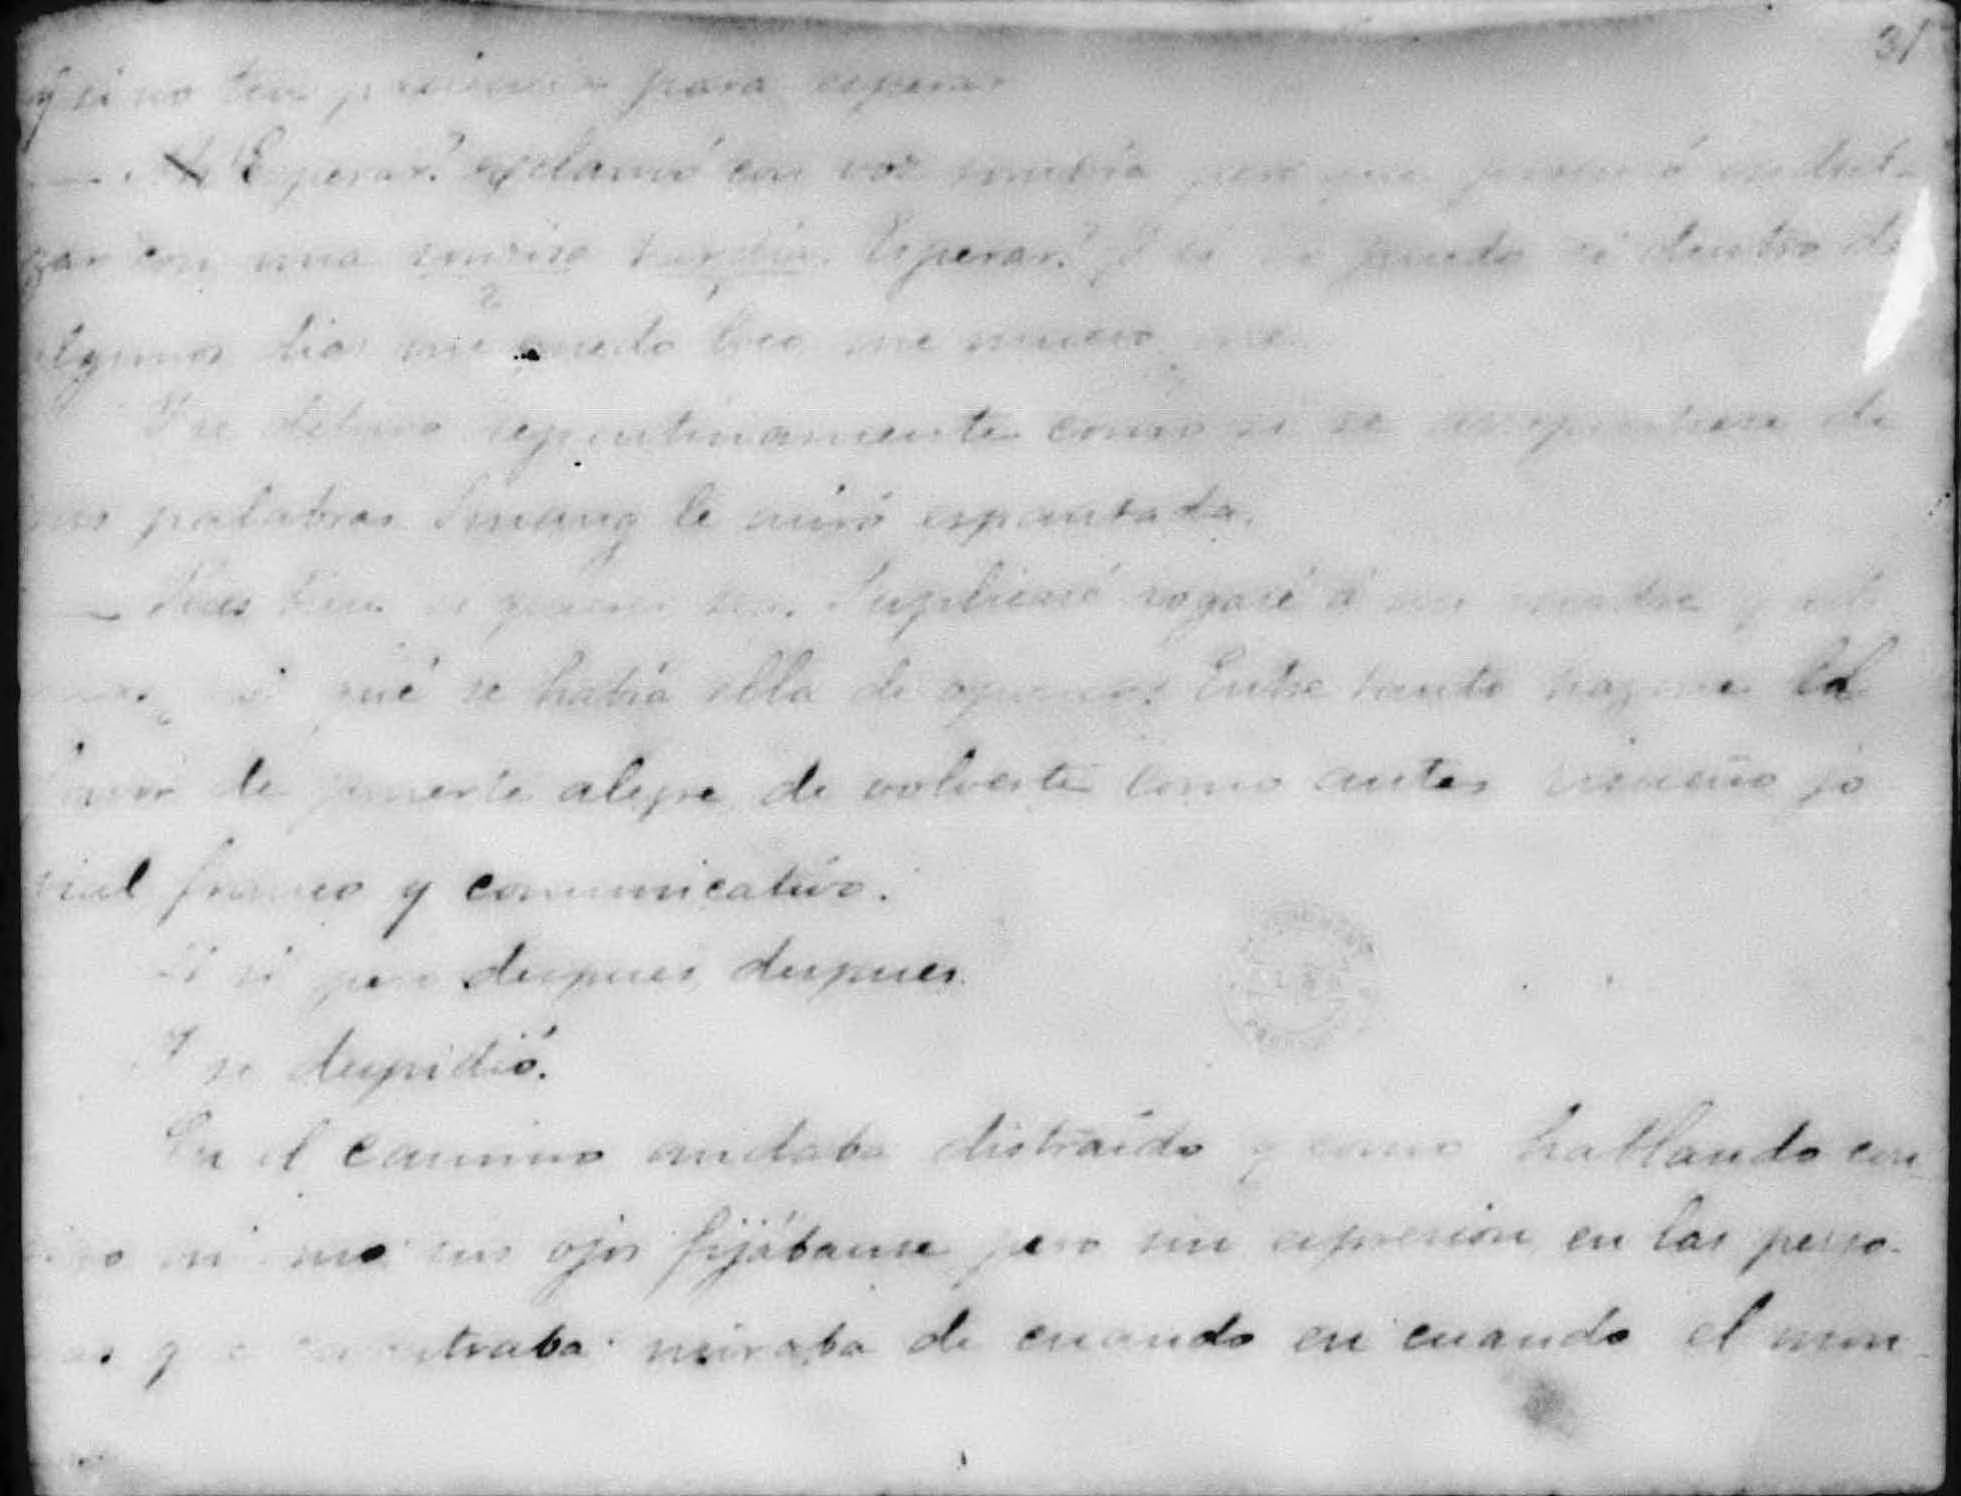 31
y si no ten paciencia para esperar
— Esperar! exclamó con voz sombría pero que procuró endul-
zar con una sonrisa Esperar! Y si no puedo si dentro de
algunos dias me quedo loco me muero me
Y se detuvo repentinamente como si se arrepintiera de
sus palabras Sinang le miró espantada.
— Pues bien si quieres Suplicaré rogaré á mi madre y
qué se habrá ella de oponer? Entre tanto hazme el
favor de ponerte alegre de volverte como antes risueño jo
vial franco y comunicativo.
Si si pero despues despues.
Y se despidió.
En el camino andaba distraido y como hablando con
sigo mismo sus ojos fijábanse pero sin expresion en las perso-
nas que encontraba miraba de cuando en cuando el